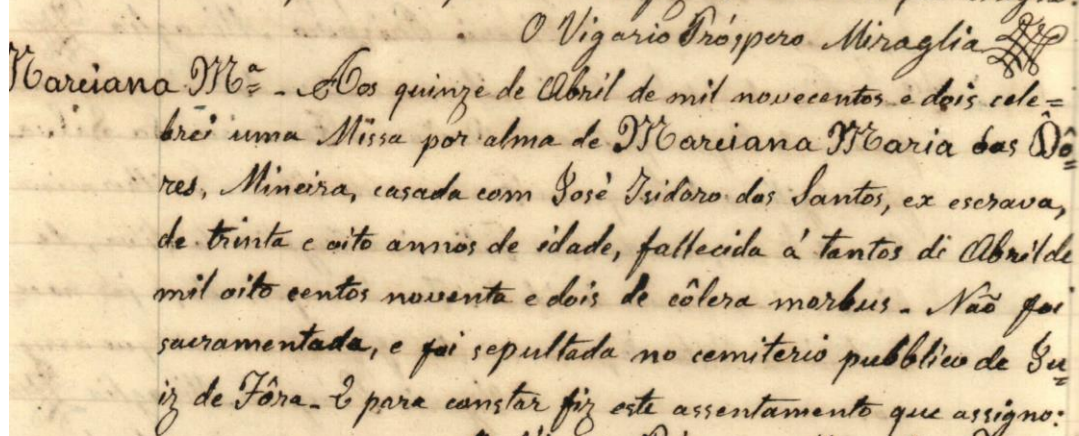 O Vigario Próspero Miraglia
Marciana Mª - Aos quinze de Abril de mil novecentos e dois cele=
brei uma Missa por alma de Marciana Maria das Dô=
res, Mineira, casada com José Isidoro dos Santos, ex escrava,
de trinta e oito annos de idade, fallecida á tantos di Abril de
mil oito centos noventa e dois de côlera morbus - Não foi
sacramentada, e foi sepultada no cemiterio pubblico de Ju=
iz de Fôra - E para constar fiz este assentamento que assigno: